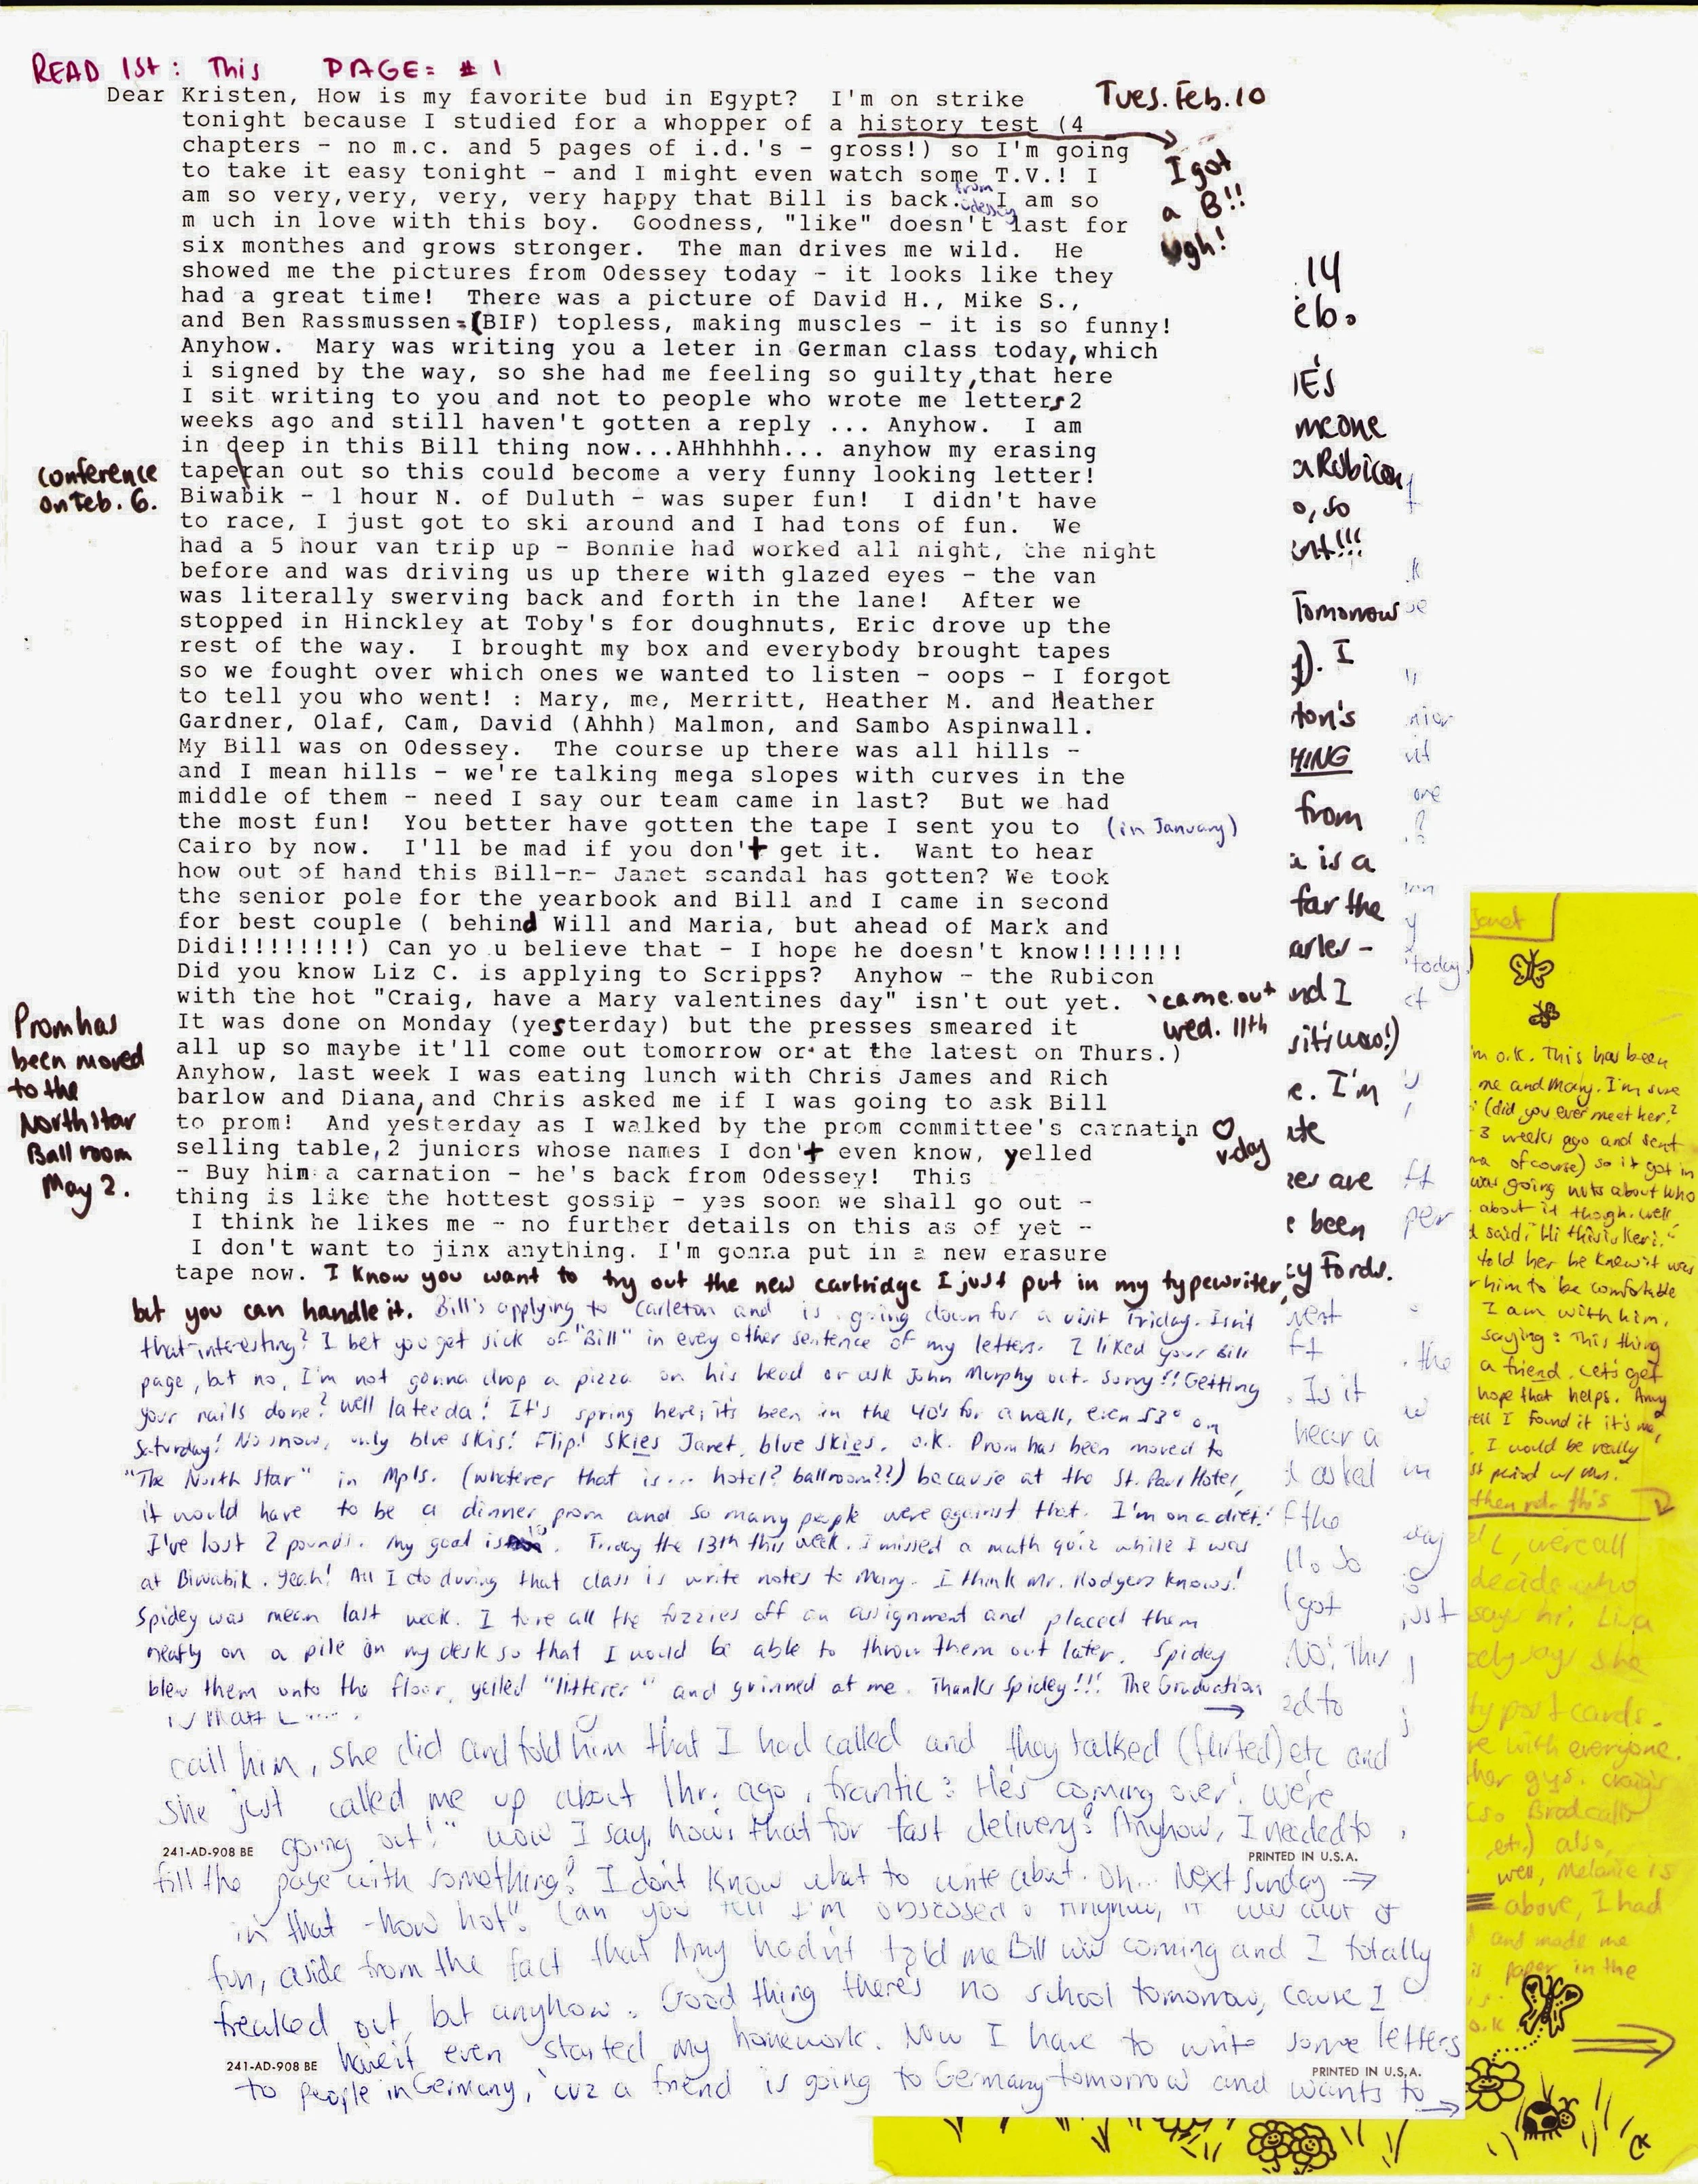 READ 1st: This PAGE: #1
Tues. Feb. 10
Dear Kristen, How is my favorite bud in Egypt? I'm on strike
tonight because I studied for a whopper of a history test (4
chapters - no m.c. and 5 pages of i.d.'s - gross!) so I'm going
to take it easy tonight - and I might even watch some T.V.! I
am so very,very, very, very happy that Bill is back. from Odessey I am so
m uch in love with this boy. Goodness, "like" doesn't last for
six monthes and grows stronger. The man drives me wild. He
showed me the pictures from Odessey today - it looks like they
had a great time! There was a picture of David H., Mike S.,
and Ben Rassmussen=(BIF) topless, making muscles - it is so funny!
Anyhow. Mary was writing you a leter in German class today, which
i signed by the way, so she had me feeling so guilty, that here
I sit writing to you and not to people who wrote me letters 2
weeks ago and still haven't gotten a reply ... Anyhow. I am
in deep in this Bill thing now...AHhhhhh... anyhow my erasing
tape ran out so this could become a very funny looking letter!
Biwabik - 1 hour N. of Duluth - was super fun! I didn't have
to race, I just got to ski around and I had tons of fun. We
had a 5 hour van trip up - Bonnie had worked all night, the night
before and was driving us up there with glazed eyes - the van
was literally swerving back and forth in the lane! After we
stopped in Hinckley at Toby's for doughnuts, Eric drove up the
rest of the way. I brought my box and everybody brought tapes
so we fought over which ones we wanted to listen - oops - I forgot
to tell you who went! : Mary, me, Merritt, Heather M. and Heather
Gardner, Olaf, Cam, David (Ahhh) Malmon, and Sambo Aspinwall.
My Bill was on Odessey. The course up there was all hills -
and I mean hills - we're talking mega slopes with curves in the
middle of them - need I say our team came in last? But we had
the most fun! You better have gotten the tape I sent you to (in January)
Cairo by now. I'll be mad if you don't get it. Want to hear
how out of hand this Bill-n- Janet scandal has gotten? We took
the senior pole for the yearbook and Bill and I came in second
for best couple ( behind Will and Maria, but ahead of Mark and
Didi!!!!!!!!) Can yo u believe that - I hope he doesn't know!!!!!!!
Did you know Liz C. is applying to Scripps? Anyhow - the Rubicon
with the hot "Craig, have a Mary valentines day" isn't out yet.
It was done on Monday (yesterday) but the presses smeared it
all up so maybe it'll come out tomorrow or at the latest on Thurs.)
Anyhow, last week I was eating lunch with Chris James and Rich
barlow and Diana, and Chris asked me if I was going to ask Bill
to prom! And yesterday as I walked by the prom committee's carnatin
selling table,2 juniors whose names I don't even know, yelled
- Buy him a carnation - he's back from Odessey! This
thing is like the hottest gossip - yes soon we shall go out -
I think he likes me - no further details on this as of yet -
I don't want to jinx anything. I'm gonna put in a new erasure
tape now. I know you want to try out the new cartridge I just put in my typewriter,
but you can handle it. Bill's applying to Carleton and is going down for a visit Friday. Isn't
that interesting? I bet you get sick of "Bill" in every other sentence of my letters. I liked your Bill
page, but no, I'm not gonna drop a pizza on his head or ask John Murphy out. Sorry!! Getting
your nails done? Well lateeda! It's spring here, it's been in the 40's for a week, even 53° on
Saturday! No snow, only blue skis! Flip! Skies Janet, blue skies. O.K. Prom has been moved to
"The North Star" in Mpls. (whatever that is... hotel? ballroom??) because at the St. Paul Hotel,
it would have to be a dinner prom and so many people were against that. I'm on a diet!
I've lost 2 pounds. My goal is 10. Friday the 13th this week. I missed a math quiz while I was
at Biwabik. Yeah! All I do during that class is write notes to Mary. I think Mr. Hodgers knows!
Spidey was mean last week. I tore all the fuzzies off an assignment and placed them
neatly on a pile on my desk so that I would be able to throw them out later. Spidey
blew them onto the floor, yelled "litterer" and grinned at me. Thanks Spidey!!! The Graduation
→
I got
a B!!
ugh!
conference
on Feb. 6.
came out
Wed. 11th
Prom has
been moved
to the
North Star
Ball room
May 2.
♡
v-day
call him, she did and told him that I had called and they talked (flirted) etc and
she just called me up about 1hr. ago, frantic: He's coming over! We're
going out!" wow I say, how's that for fast delivery? Anyhow, I needed to
fill the page with something! I don't know what to write about. Oh... Next Sunday →
241-AD-908 BE
PRINTED IN U.S.A.
in that - how hot"! Can you tell I'm obsessed? Anyhow, it was alot of
fun, aside from the fact that Amy hadn't told me Bill was coming and I totally
freaked out, but anyhow. Good thing there's no school tomorrow, cause I
haven't even started my homework. Now I have to write some letters
241-AD-908 BE
PRINTED IN U.S.A.
to people in Germany, 'cuz a friend is going to Germany tomorrow and wants to →
14
eb.
IE'S
meone
a Rubicon
o, so
Tomorrow
). I
ton's
HING
from
is a
far the
arler -
nd I
e. I'm
ate
are
been
cy Fords.
. Is it
hear a
asked
f the
I got
NO! This
ed to
today.)
Janet
'm o.k. This has been
me and Mary. I'm sure
(did you ever meet her?
3 weeks ago and sent
of course) so it got in
was going nuts about who
about it though. Well
said, "Hi this is Keri."
told her he knew it was
him to be comfortable
I am with him.
saying: This thing
a friend. Let's get
hope that helps. Amy
ell I found it it's me,
. I would be really
then rd. this
L, were all
decide who
says hi. Lisa
says she
ty post cards.
with everyone.
her guys. Craig's
(so Brad calls
etc.) also,
well, Melanie is
above, I had
and made me
is paper in the
o.k.